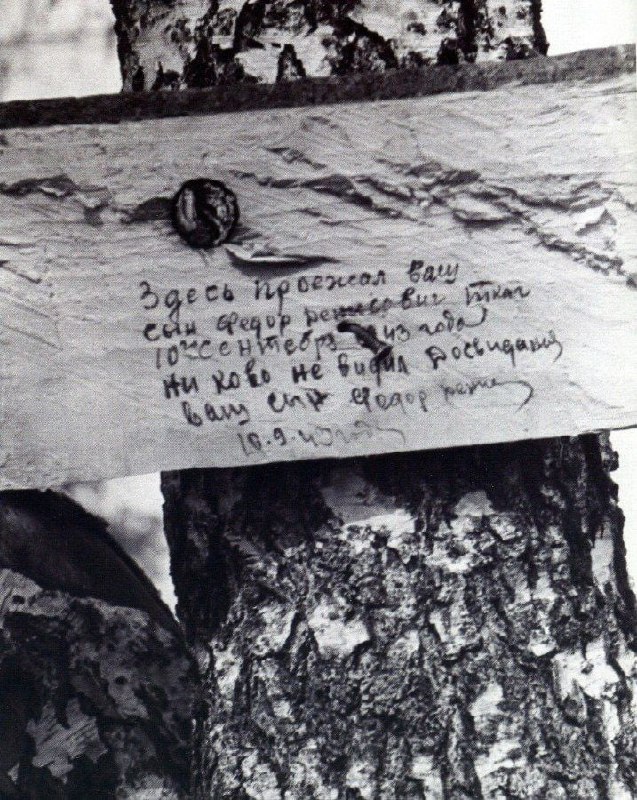 Здесь проежал ваш
сын Федор Ткач
10го Сентебра 1943 года
ни ково не видил Досвидания
ваш сын Федор
10.9.43 года